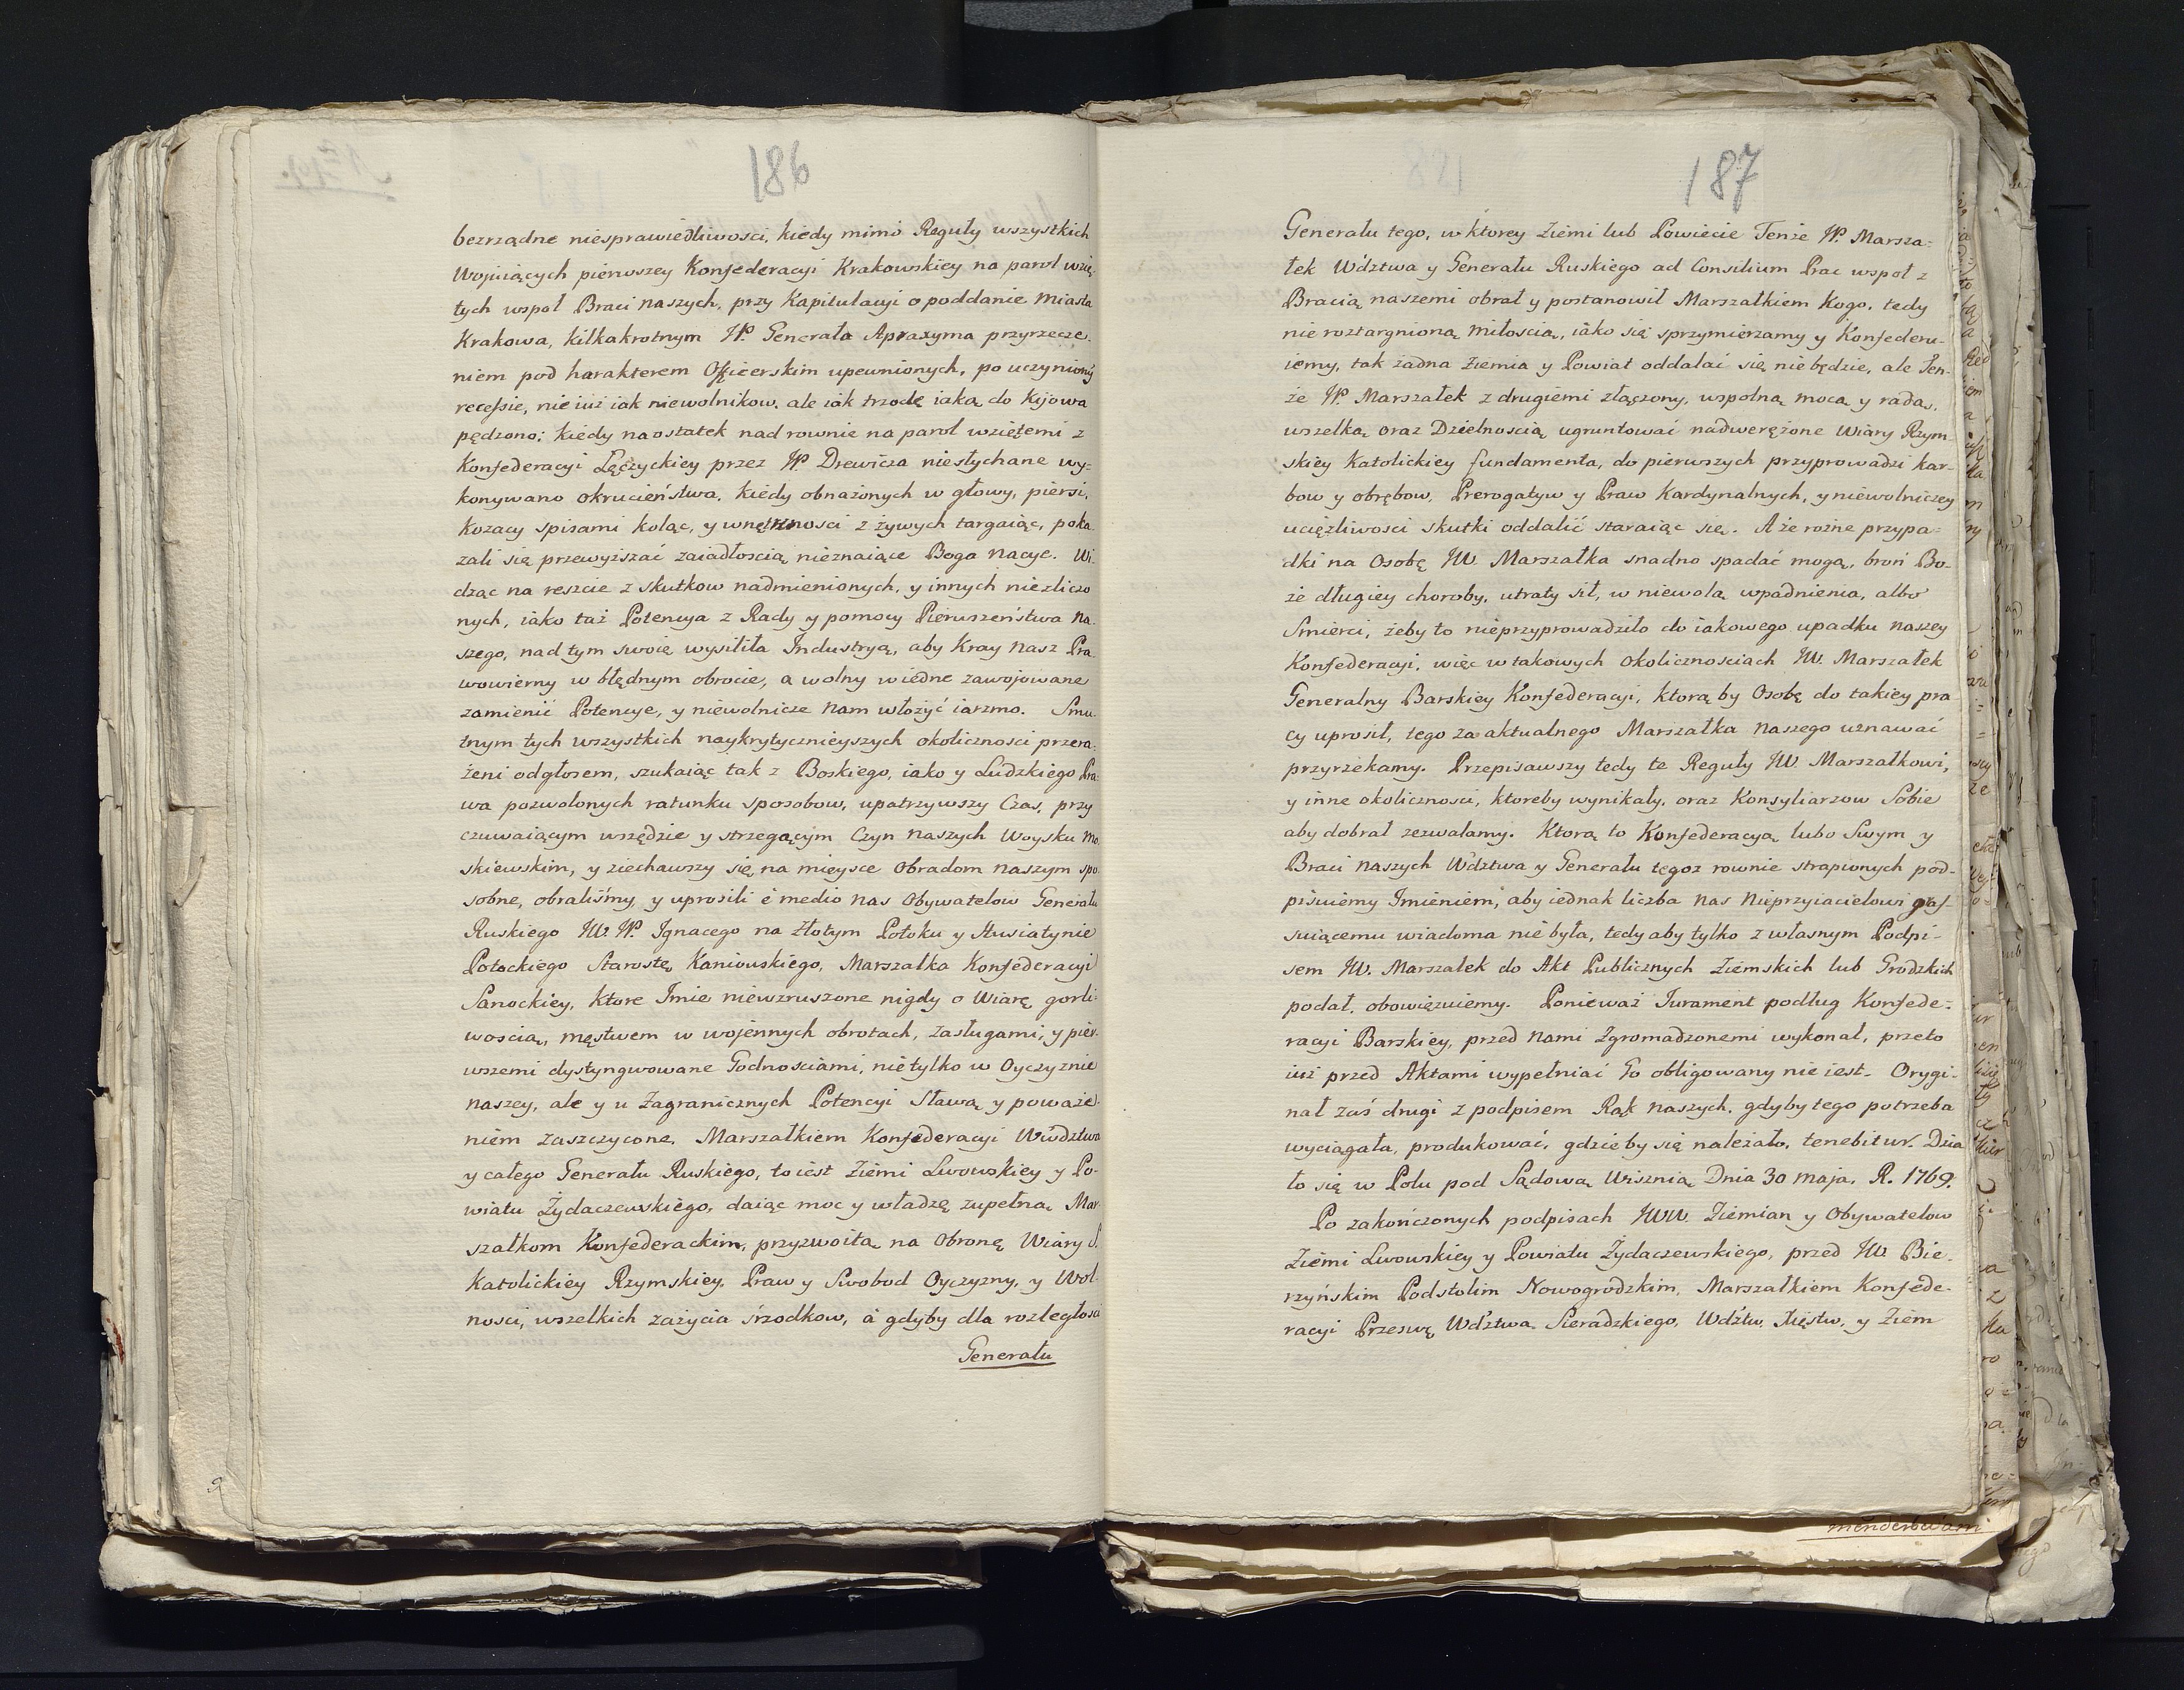 186
bezrządne niesprawiedliwosci, kiedy mimo Reguły wszystkich
Wojuiących pierwszey Konfederacyi Krakowskiey na parol wzię-
tych wspoł Braci naszych, przy Kapitulacyi o poddanie Miasta
Krakowa, kilkakrotnym W. Generała Apraxyma przyrzecze-
niem pod harakterem Officerskim upewnionych, po uczyniony
recessie, nie iuż iak niewolnikow, ale iak trzodę iaką do Kijowa
pędzono; kiedy naostatek nad rownie na parol wziętemi z
Konfederacyi Łęczyckiey przez W Drewicza niesłychane wy-
konywano okrucieństwa, kiedy obnażonych w głowy, piersi,
Kozacy spisami koląc, y wnętrznosci z żywych targaiąc, poka
zali się przewyższać zaiadłoscią nieznaiące Boga Nacye. Wi-
dząc na reszcie z skutkow nadmienionych, y innych niezliczo
nych, iako taż Potencya z Rady y pomocy Pierwszeństwa Na-
szego, nad tym swoię wysiliła Industryą, aby Kray Nasz Pra
wowierny w błędnym obrocie, a wolny w iedne zawojowane
zamienić Potencye, y niewolnicze Nam włożyć iarzmo. Smu-
tnym tych wszystkich naykrytycznieyszych okolicznosci przera-
żeni odgłosem, szukaiąc tak z Boskiego, iako y Ludzkiego Pra-
wa pozwolonych ratunku sposobow, upatrzywszy Czas, przy
czuwaiącym wszędzie y strzegącym Czyn Naszych Woysku Mo
skiewskim, y ziechawszy się na mieysce Obradom Naszym spo-
sobne, obraliśmy y uprosili è medio nas Obywatelow Generału
Ruskiego JW. W. Ignacego na Złotym Potoku y Husiatynie
Potockiego Starostę Kaniowskiego, Marszałka Konfederacyi
Sanockiey, ktore Imie niewzruszone nigdy o Wiarę gorli-
woscią, męstwem w wojennych obrotach, zasługami, y pier-
wszemi dystyngwowane Godnosciami, nie tylko w Oyczyznie
naszey, ale y u Zagranicznych Potencyi Sławą y poważe-
niem zaszczycone, Marszałkiem Konfederacyi Wwdztwa
y całego Generału Ruskiego, to iest Ziemi Lwowskiey y Po-
wiatu Żydaczewskiego, daiąc moc y władzę zupełną Mar
szałkom Konfederackim, przyzwoitą na Obronę Wiary S.
Katolickiey Rzymskiey, Praw y Swobod Oyczyzny, y Wol-
nosci, wszelkich zażycia śrzodkow, à gdyby dla rozległosci
Generału
187
Generału tego, w ktorey Ziemi lub Powiecie Tenże W. Marsza-
łek Wdztwa y Generału Ruskiego ad Consilium Prac wspoł z
Bracią naszemi obrał y postanowił Marszałkiem Kogo, tedy
nie roztargnioną miłoscią, iako się sprzymierzamy y Konfederu-
iemy, tak żadna Ziemia y Powiat oddalać się nie będzie, ale Ten-
że W. Marszałek z drugiemi złączony, wspolną mocą y radą,
wszelką oraz Dzielnoscią ugruntować nadwerężone Wiary Rzym-
skiey Katolickiey fundamenta, do pierwszych przyprowadzi kar-
bow y obrębow, Prerogatyw y Praw Kardynalnych, y niewolniczey
uciężliwosci skutki oddalić staraiąc się. A że rożne przypa-
dki na Osobę JW. Marszałka snadno spadać mogą, broń Bo-
że długiey choroby, utraty sił, w niewolą wpadnienia, albo
Smierci, żeby to nieprzyprowadziło do iakowego upadku Naszey
Konfederacyi, więc w takowych okolicznosciach JW. Marszałek
Generalny Barskiey Konfederacyi, ktorą by Osobę do takiey pra
cy uprosił, tego za aktualnego Marszałka Naszego uznawać
przyrzekamy. Przepisawszy tedy te Reguły JW. Marszałkowi,
y inne okolicznosci, ktoreby wynikały, oraz Konsyliarzow Sobie
aby dobrał zezwalamy. Ktorą to Konfederacyą, lubo Swym y
Braci Naszych Wdztwa y Generału tegoż rownie strapionych pod-
pisuiemy Imieniem, aby iednak liczba Nas Nieprzyiacielowi gras-
suiącemu wiadoma nie była, tedy aby tylko z własnym Podpi-
sem JW. Marszałek do Akt Publicznych Ziemskich lub Grodzkich
podał, obowięzuiemy. Ponieważ Jurament podług Konfede-
racyi Barskiey, przed Nami Zgromadzonemi wykonał, przeto
iuż przed Aktami wypełniać Go obligowany nie iest. Orygi-
nał zaś drugi z podpisem Rąk Naszych, gdyby tego potrzeba
wyciągała, produkować, gdzieby się należało, tenebitur. Dzia
ło się w Polu pod Sądową Wisznią Dnia 30 Maja, R. 1769.
Po zakończonych podpisach JWW. Ziemian y Obywatelow
Ziemi Lwowskiey y Powiatu Żydaczewskiego, przed JW. Bie-
rzyńskim Podstolim Nowogrodzkim, Marszałkiem Konfede-
racyi Przeswę Wdztwa Sieradzkiego, Wdztw, Xięstw, y Ziem